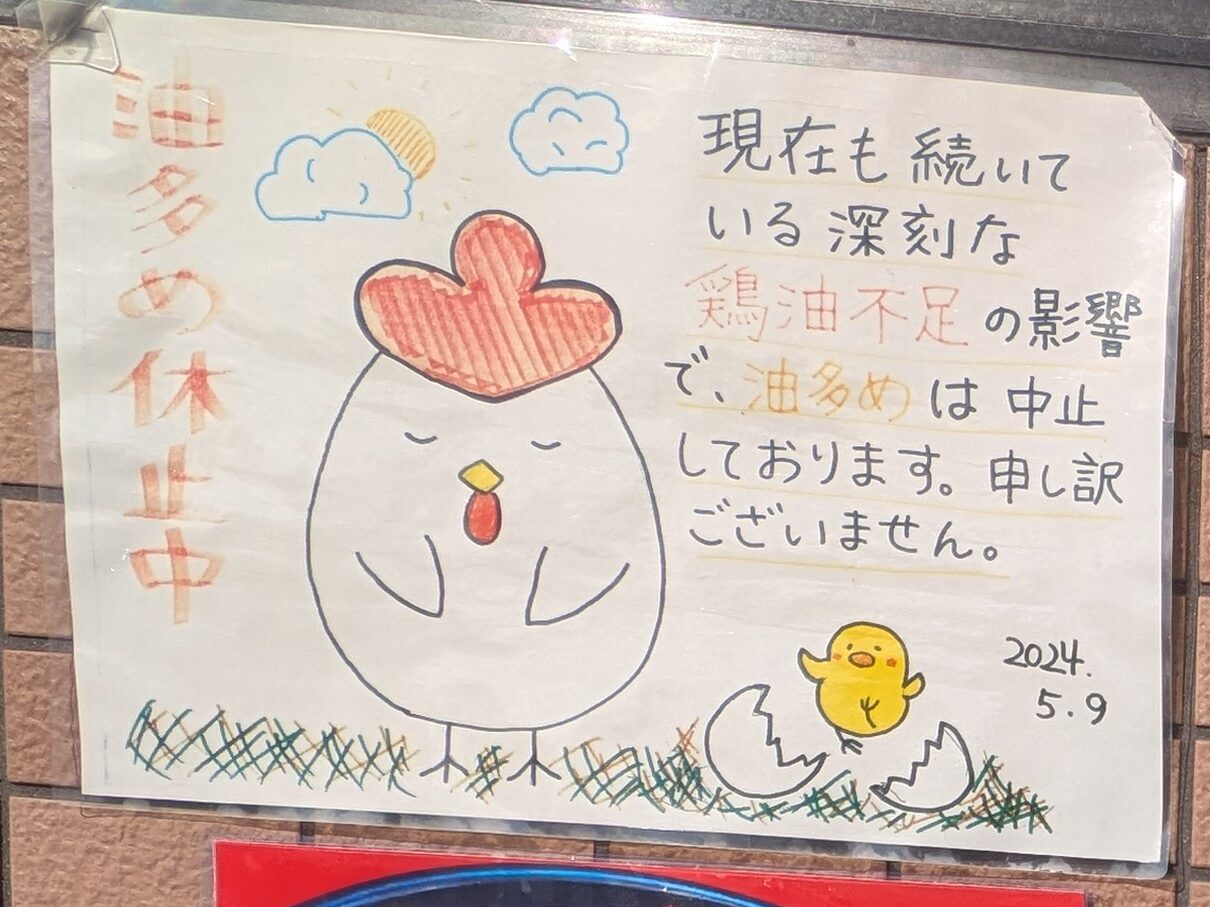 油多め休止中
現在も続いて
いる深刻な
鶏油不足の影響
で、油多めは中止
しております。申し訳
ございません。
2024.
5.9